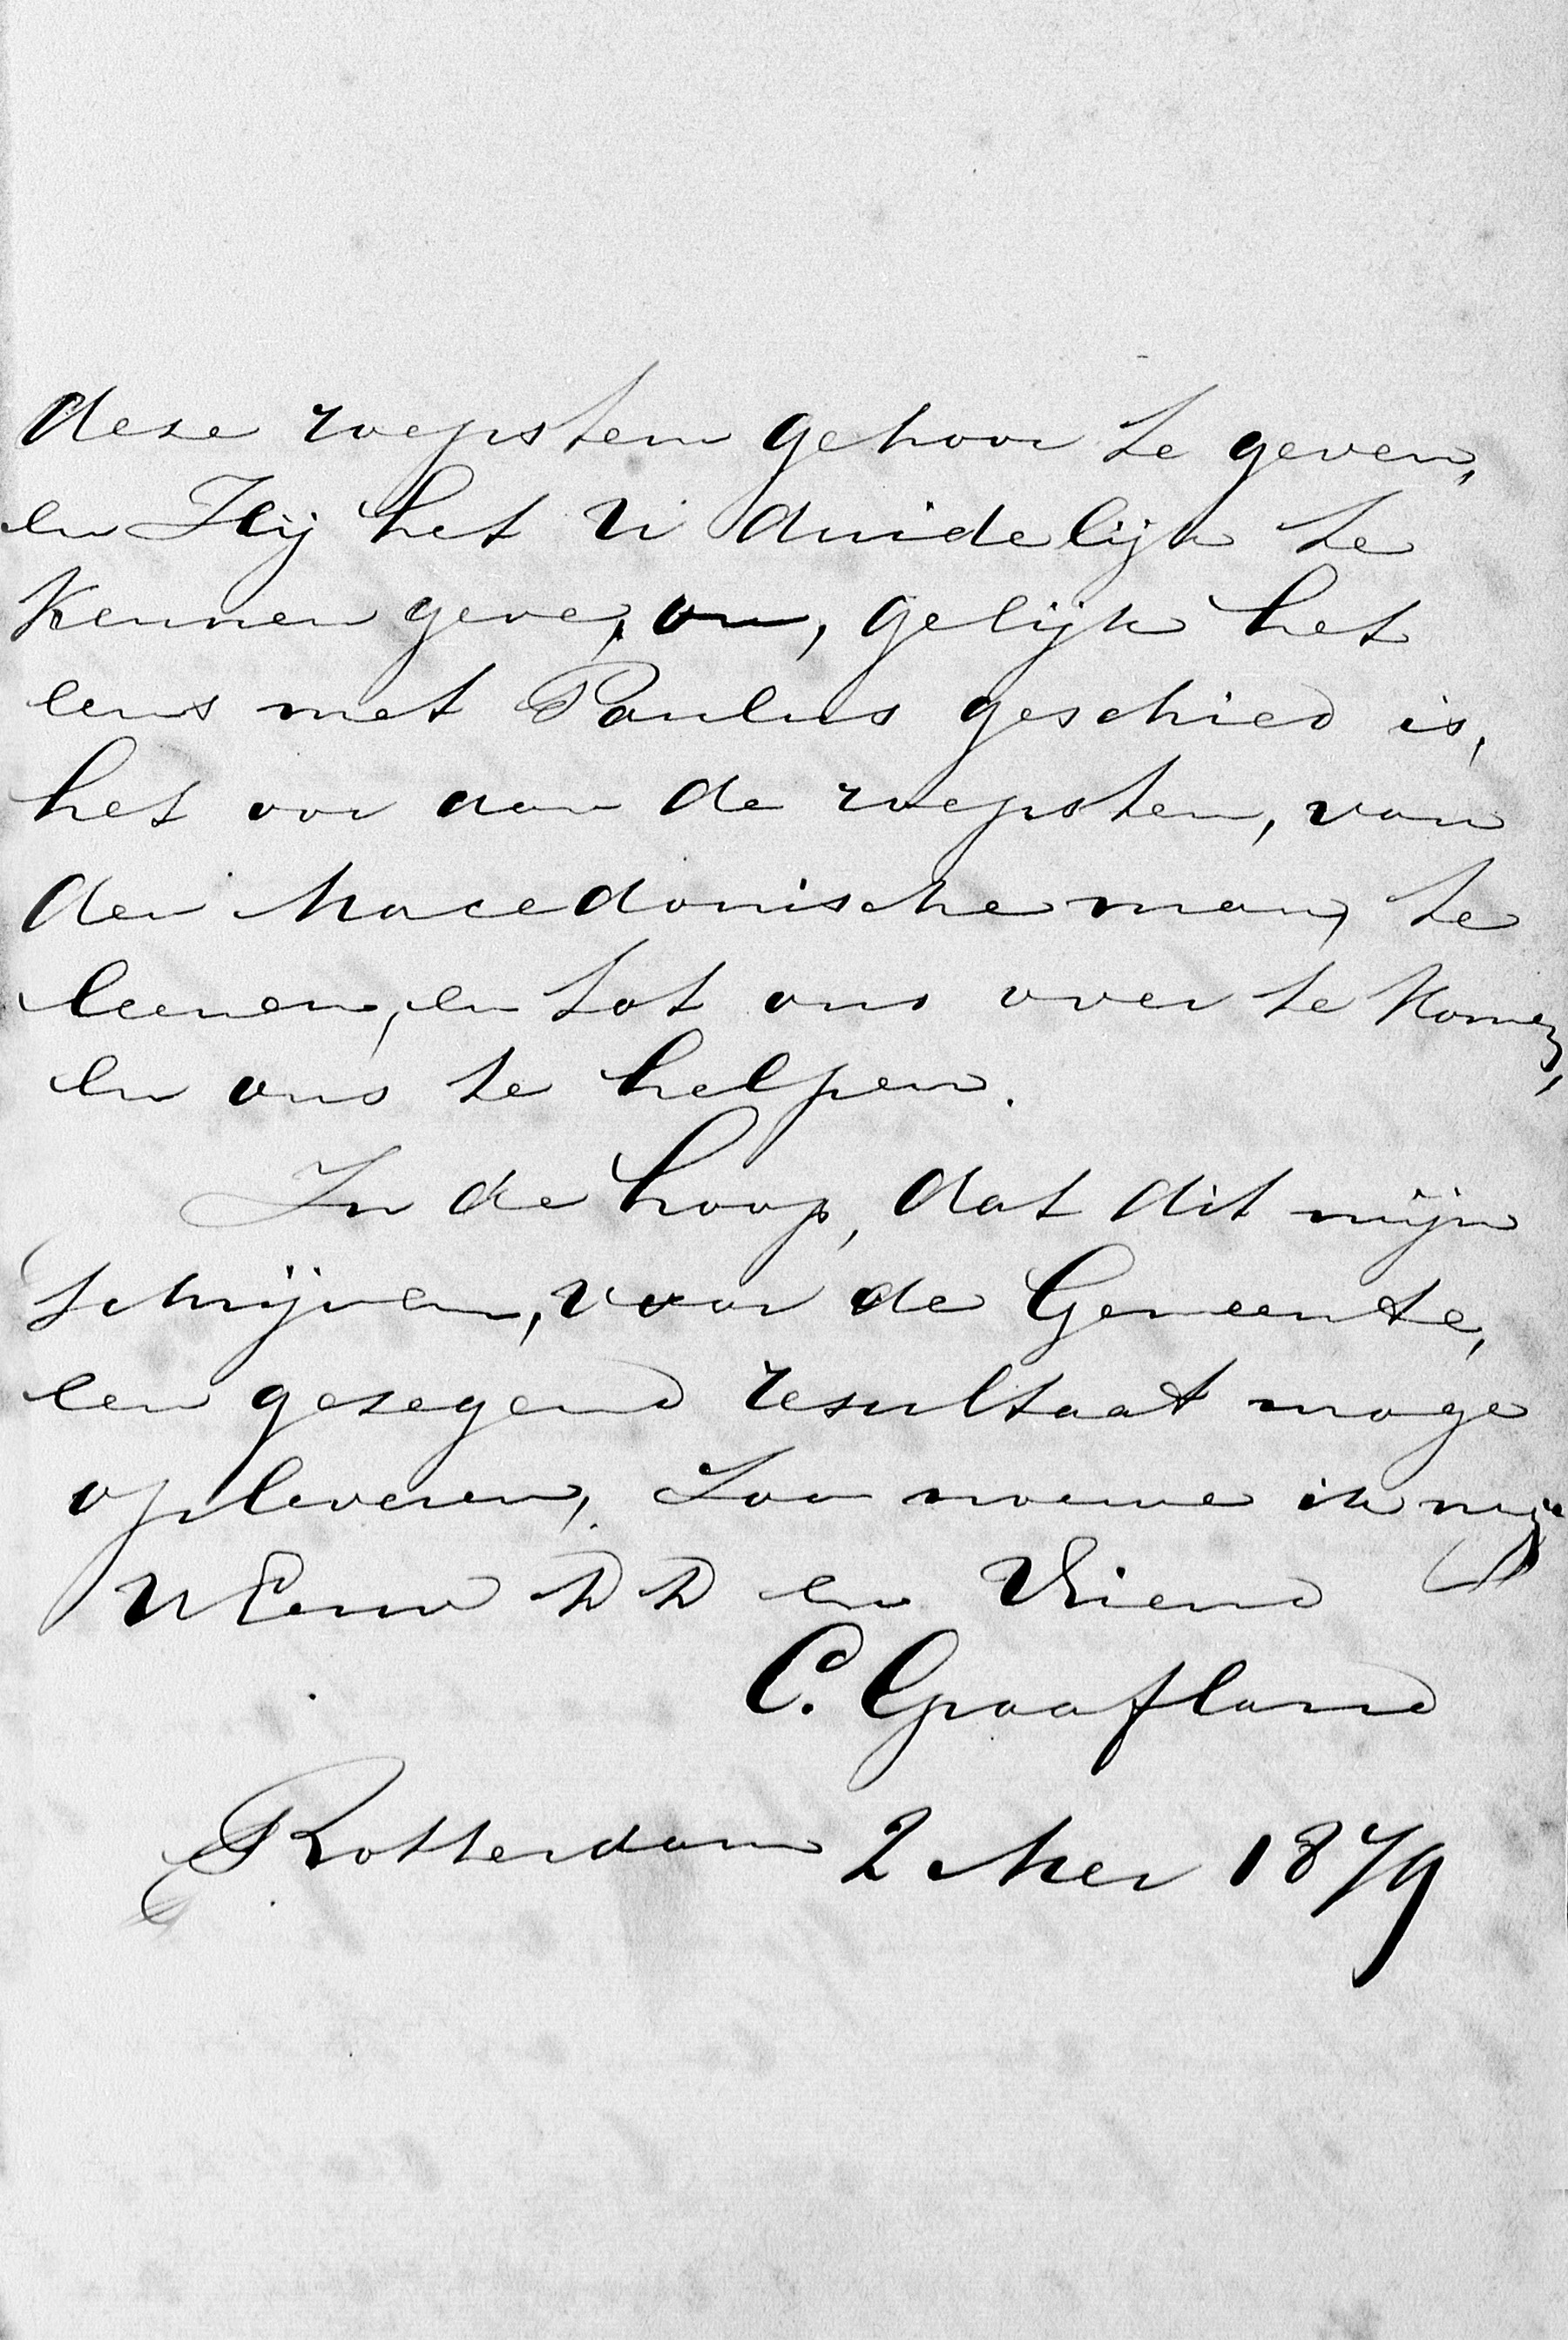 deze roepstem gehoor te geven,
en Hij het U duidelijk te
kennen geve, om, gelijk het
eens met Paulus geschied is,
het oor aan de roepstem, van
den Macedonische man, te
leenen, en tot ons over te komen,
en ons te helpen.
In de hoop, dat dit mijn
schrijven, voor de Gemeente,
een gezegend resultaat moge
opleveren, Zoo noeme ik mij
UEerw DD en Vriend
C. Graafland
Rotterdam 2 Mei 1879